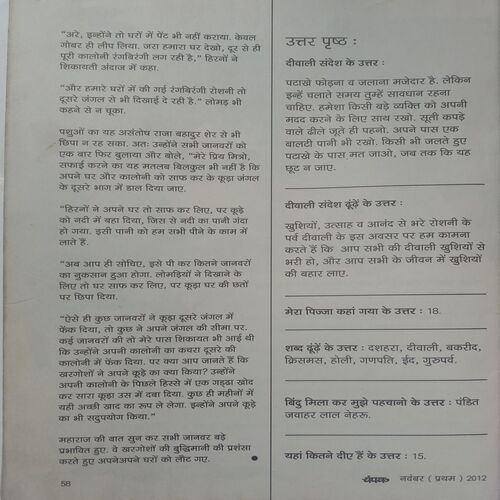 "अरे, इन्होंने तो घरों में पेंट भी नहीं कराया. केवल
गोबर ही लीप लिया. जरा हमारा घर देखो, दूर से ही
पूरी कालोनी रंगबिरंगी लग रही है," हिरनों ने
शिकायती अंदाज में कहा.
"और हमारे घरों में की गई रंगबिरंगी रोशनी तो
दूसरे जंगल से भी दिखाई दे रही है." लोमड़ भी
कहने से न चूका.
पशुओं का यह असंतोष राजा बहादुर शेर से भी
छिपा न रह सका. अतः उन्होंने सभी जानवरों को
एक बार फिर बुलाया और बोले, "मेरे प्रिय मित्रो,
सफाई करने का यह मतलब बिलकुल भी नहीं है कि
अपने घर और कालोनी को साफ कर के कूड़ा जंगल
के दूसरे भाग में डाल दिया जाए.
"हिरनों ने अपने घर तो साफ कर लिए, पर कूड़े
को नदी में बहा दिया, जिस से नदी का पानी गंदा
हो गया. इसी पानी को हम सभी पीने के काम में
लाते हैं.
"अब आप ही सोचिए, इसे पी कर कितने जानवरों
का नुकसान हुआ होगा. लोमड़ियों ने दिखाने के
लिए तो घर साफ कर लिए, पर कूड़ा घर की छतों
पर छिपा दिया.
"ऐसे ही कुछ जानवरों ने कूड़ा दूसरे जंगल में
फेंक दिया, तो कुछ ने अपने जंगल की सीमा पर.
कई जानवरों की तो मेरे पास शिकायत भी आई थी
कि उन्होंने अपनी कालोनी का कचरा दूसरे की
कालोनी में फेंक दिया. पर क्या आप जानते हैं कि
खरगोशों ने अपने कूड़े का क्या किया? उन्होंने
अपनी कालोनी के पिछले हिस्से में एक गड्ढा खोद
कर सारा कूड़ा उस में दबा दिया. कुछ ही महीनों में
यही अच्छी खाद का रूप ले लेगा. इन्होंने अपने कूड़े
का भी सदुपयोग किया."
महाराज की बात सुन कर सभी जानवर बड़े
प्रभावित हुए. वे खरगोशों की बुद्धिमानी की प्रशंसा
करते हुए अपनेअपने घरों को लौट गए.
58
उत्तर पृष्ठ :
दीवाली संदेश के उत्तर :
पटाखे फोड़ना व जलाना मजेदार है. लेकिन
इन्हें चलाते समय तुम्हें सावधान रहना
चाहिए. हमेशा किसी बड़े व्यक्ति को अपनी
मदद करने के लिए साथ रखो. सूती कपड़े
वाले ढीले जूते ही पहनो. अपने पास एक
बालटी पानी भी रखो. किसी भी जलते हुए
पटाखे के पास मत जाओ, जब तक कि यह
छूट न जाए.
दीवाली संदेश ढूंढ़ें के उत्तर :
खुशियों, उत्साह व आनंद से भरे रोशनी के
पर्व दीवाली के इस अवसर पर हम कामना
करते हैं कि आप सभी की दीवाली खुशियों से
भरी हो, और आप सभी के जीवन में खुशियों
की बहार लाए.
मेरा पिज्जा कहां गया के उत्तर : 18.
शब्द ढूंढ़ें के उत्तर : दशहरा, दीवाली, बकरीद,
क्रिसमस, होली, गणपति, ईद, गुरुपर्व.
बिंदु मिला कर मुझे पहचानो के उत्तर : पंडित
जवाहर लाल नेहरू.
यहां कितने दीए हैं के उत्तर : 15.
चंपक नवंबर ( प्रथम ) 2012